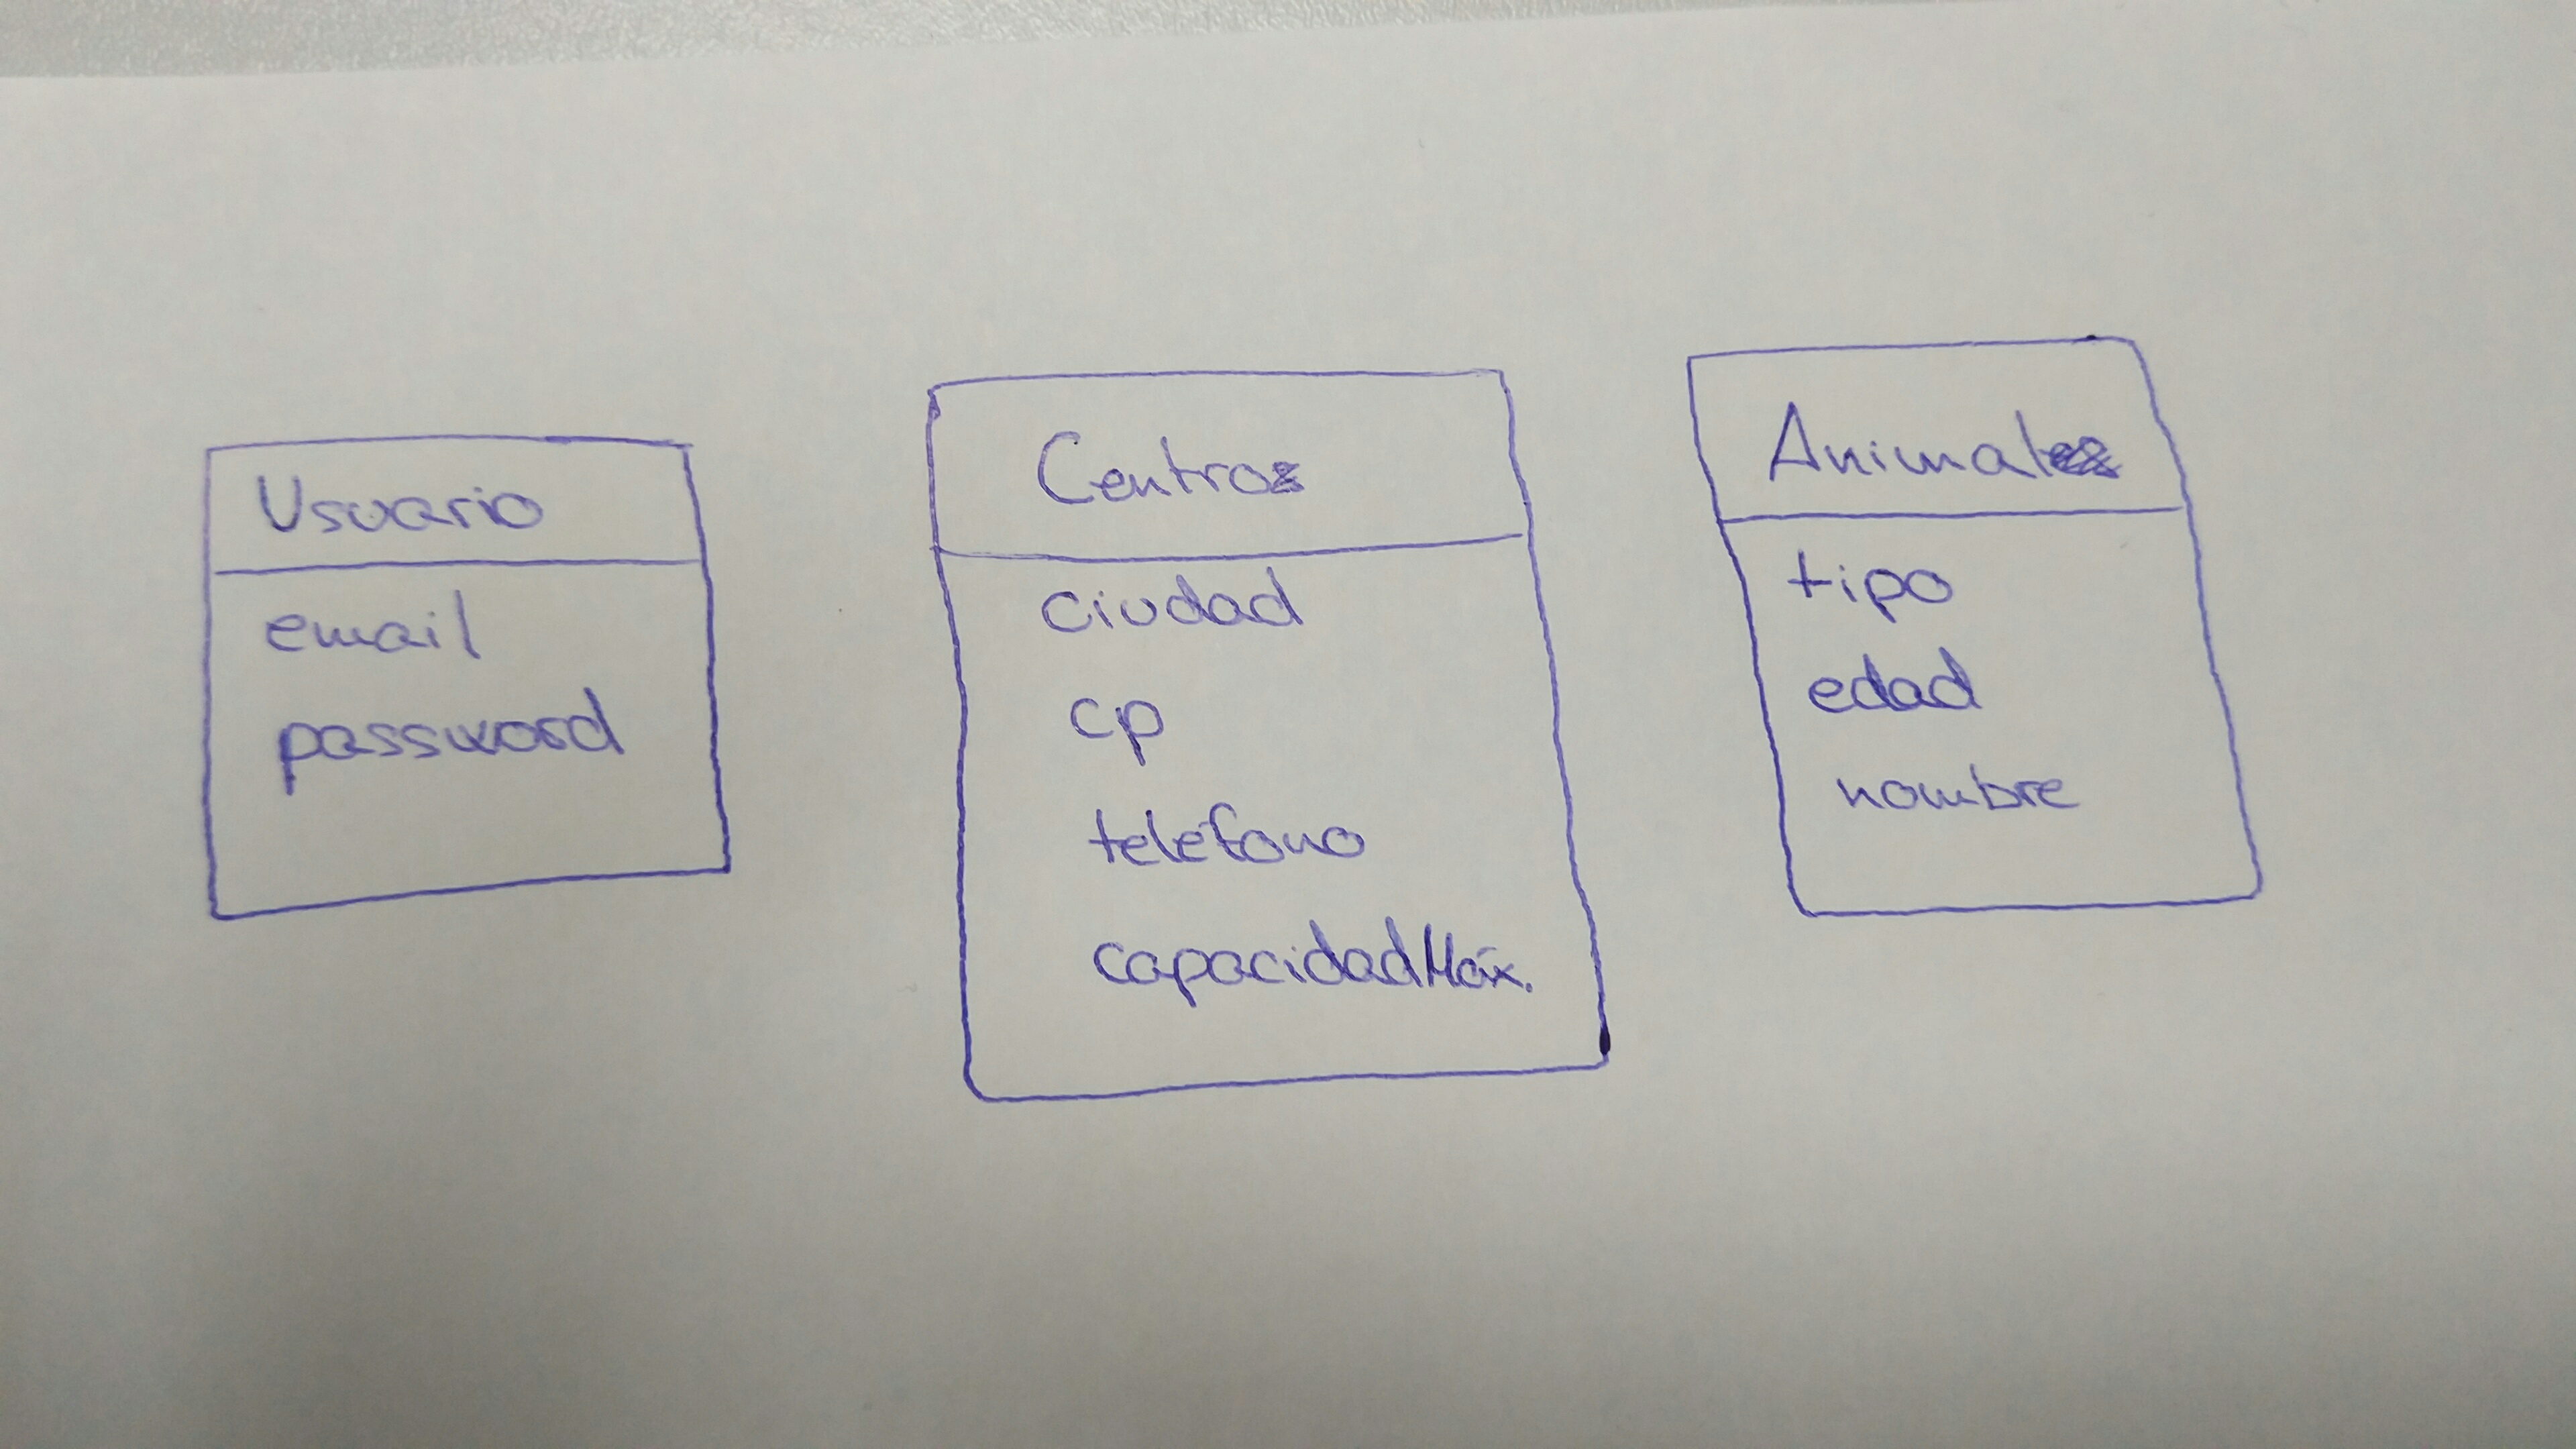 Usuario
email
password
Centro
ciudad
cp
teléfono
capacidadMáx.
Animal
tipo
edad
nombre